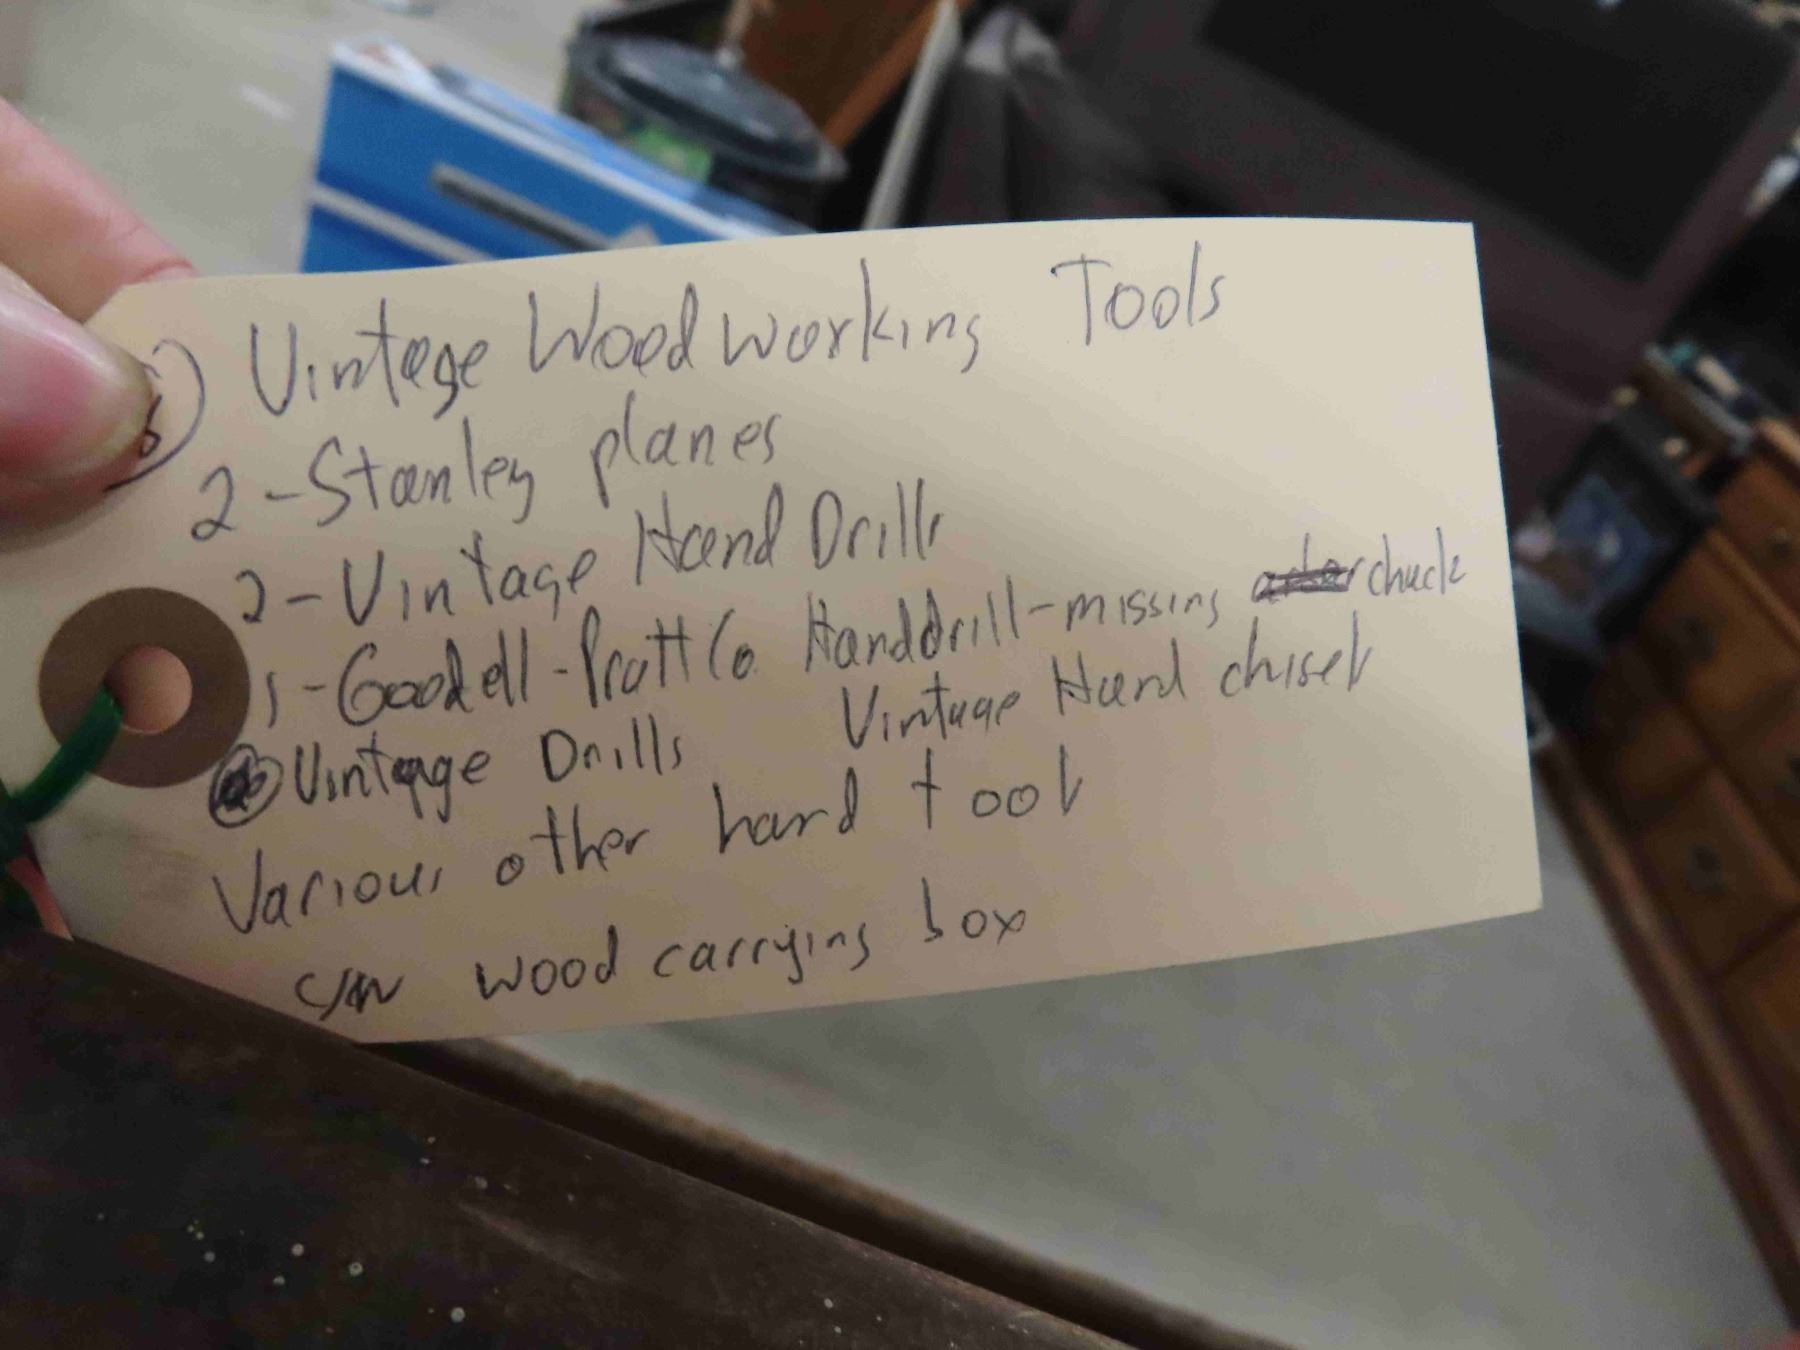 Vintage Woodworking Tools
2-Stanley planes
2-Vintage Hand Drills
1-Goodell-Pratt Co Handdrill-missing chuck
Vintage Drills Vintage Hand chisels
Various other hand tools
c/w wood carrying box